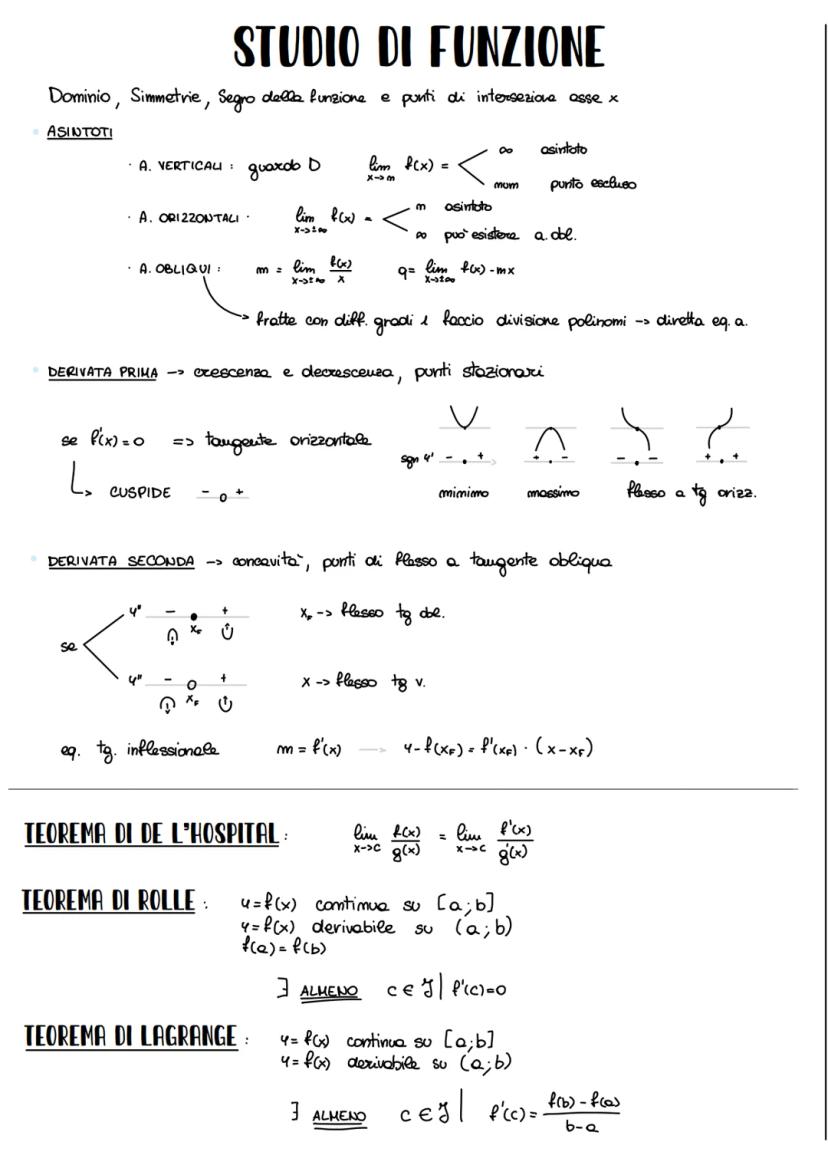 STUDIO DI FUNZIONE
Dominio, Simmetrie, Segno della funzione e punti di intersezione asse x
• ASINTOTI
· A. VERTICALI : guardo D lim x->m f(x) = < ∞ asintoto
num punto escluso
· A. ORIZZONTALI · lim x->±∞ f(x) = < m asintoto
∞ può esistere a. obl.
· A. OBLIQUI : m = lim x->±∞ f(x)/x q = lim x->±∞ f(x) - mx
-> fratte con diff. gradi 1 faccio divisione polinomi -> diretta eq. a.
• DERIVATA PRIMA -> crescenza e decrescenza, punti stazionari
se f'(x) = 0 => tangente orizzontale
sgn y' - • + + • - - • - + • +
-> CUSPIDE - o +
minimo massimo flesso a tg orizz.
• DERIVATA SECONDA -> concavità, punti di flesso a tangente obliqua
se
y" - • + x_F -> flesso tg obl.
x_F
y" - o + x -> flesso tg v.
x_F
eq. tg. inflessionale m = f'(x) -> y - f(x_F) = f'(x_F) · (x - x_F)
TEOREMA DI DE L'HOSPITAL : lim x->c f(x)/g(x) = lim x->c f'(x)/g'(x)
TEOREMA DI ROLLE : y = f(x) continua su [a;b]
y = f(x) derivabile su (a;b)
f(a) = f(b)
∃ ALMENO c ∈ I | f'(c) = 0
TEOREMA DI LAGRANGE : y = f(x) continua su [a;b]
y = f(x) derivabile su (a;b)
∃ ALMENO c ∈ I | f'(c) = f(b) - f(a) / b - a